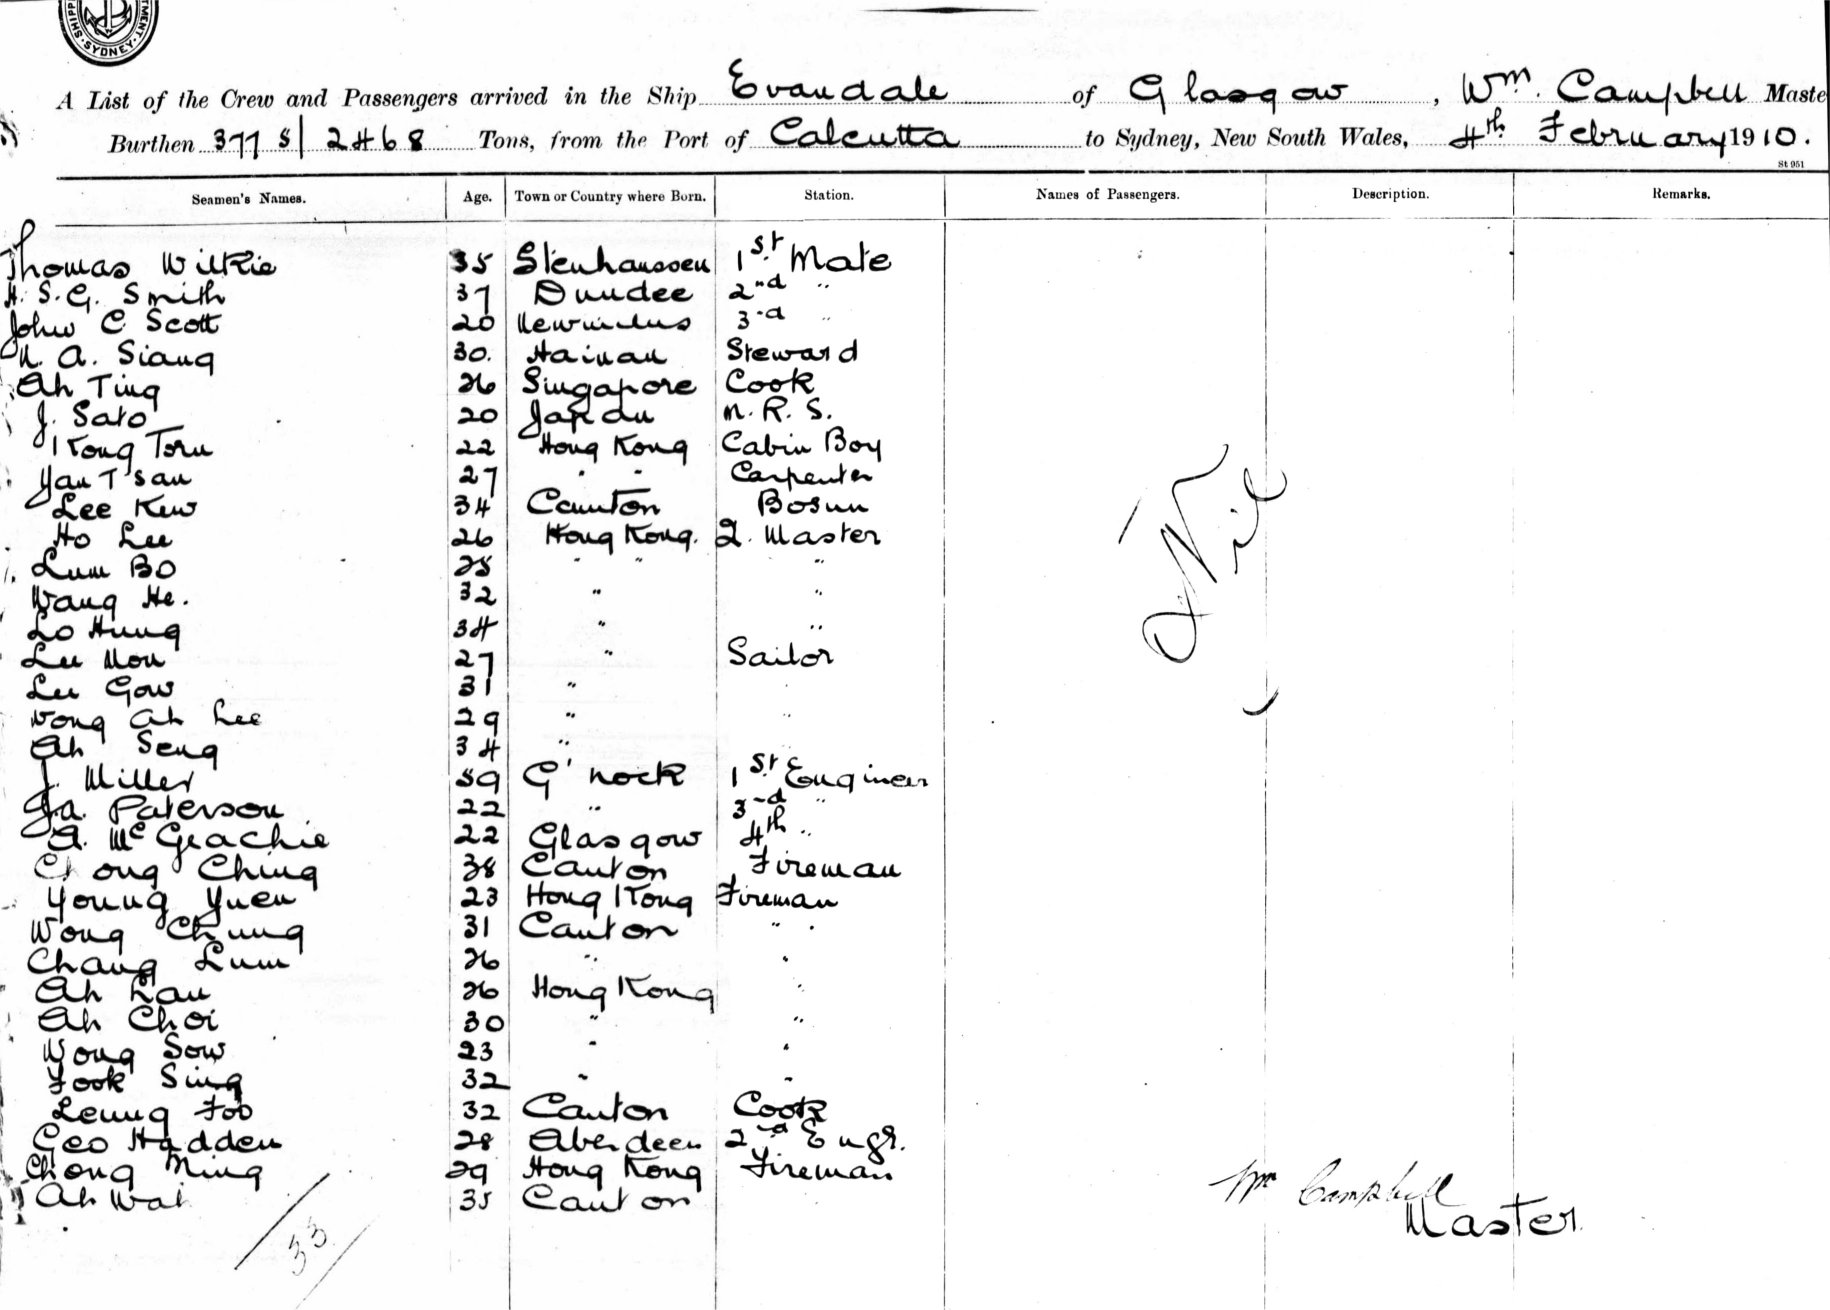 SYDNEY
A List of the Crew and Passengers arrived in the Ship Evandale of Glasgow, Wm. Campbell Maste
Burthen 3775/2468 Tons, from the Port of Calcutta to Sydney, New South Wales, 4th February 1910.
St 951
Seamen's Names. Age. Town or Country where Born. Station. Names of Passengers. Description. Remarks.
Thomas Wilkie 35 Stenhaussen 1st Mate
H. S. G. Smith 37 Dundee 2nd "
John C Scott 20 3rd "
A. Siang 30. Hainan Steward
Ah Ting 26 Singapore Cook
J. Sato 20 Japan M. R. S.
Kong Toru 22 Hong Kong Cabin Boy
Yan T'san 27 " " Carpenter
Lee Kew 34 Canton Bosun
Ho Lee 26 Hong Kong. Q. Master
Lum Bo 25 " " "
Wang He. 32 " "
Lo Hung 34 " "
Lee Mou 27 " Sailor
Lee Gow 31 " "
Wong Ah Lee 29 " "
Ah Seng 34 " "
J. Miller 59 G'nock 1st Engineer
Ja. Paterson 22 " 3rd "
A. McGeachie 22 Glasgow 4th "
Chong Ching 38 Canton Fireman
Young Yuen 23 Hong Kong Fireman
Wong Chung 31 Canton "
Chang Lum 26 " "
Ah Lau 26 Hong Kong "
Ah Choi 30 " "
Wong Sow 23 " "
Fook Sing 32 " "
Leung Foo 32 Canton Cook
Geo Hadden 28 Aberdeen 2nd Engr.
Chong Ming 29 Hong Kong Fireman
Ah Wah 35 Canton
Nil
33
Wm Campbell
Master